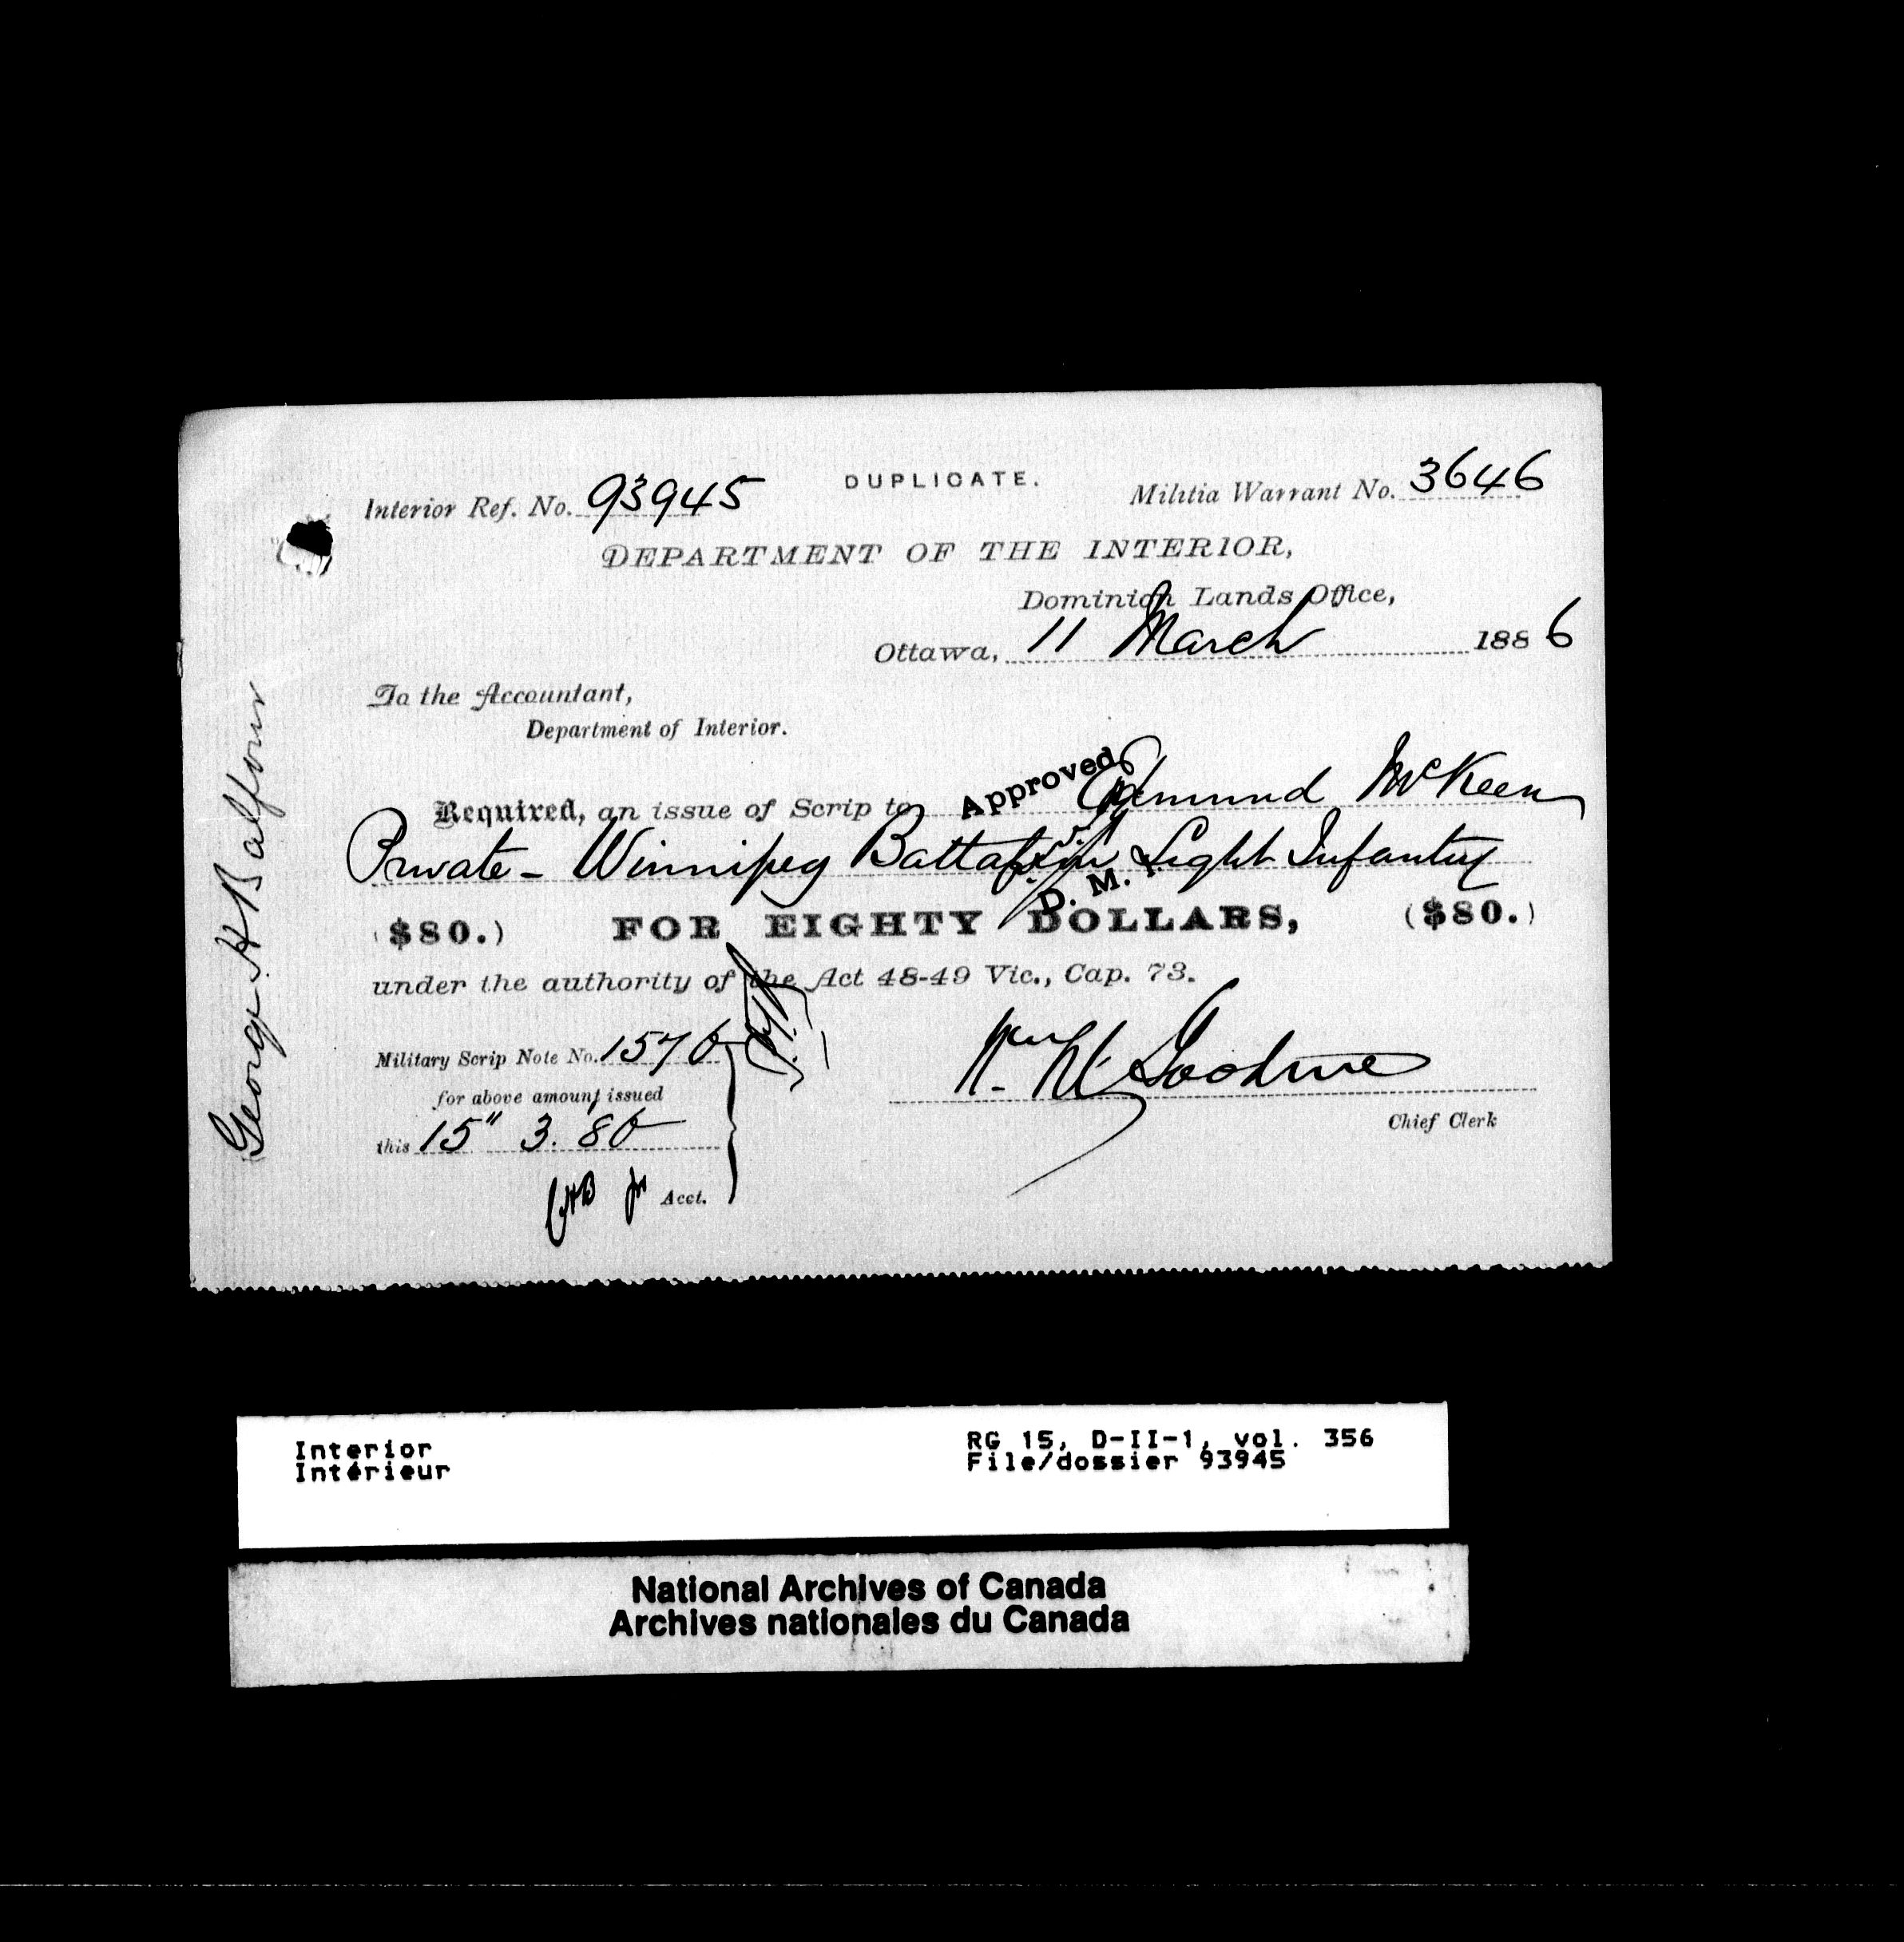 DUPLICATE.
Interior Ref. No. 93945
Militia Warrant No. 3646
DEPARTMENT OF THE INTERIOR,
Dominion Lands Office,
Ottawa, 11 March 1886
To the Accountant,
Department of Interior.
Approved
Required, an issue of Scrip to Edmund McKeen
Private - Winnipeg Battalion Light Infantry
D. M. I.
($80.) FOR EIGHTY DOLLARS, ($80.)
under the authority of the Act 48-49 Vic., Cap. 73.
Military Scrip Note No. 1576
for above amount issued
this 15" 3. 86
Acct.
Chief Clerk
George H Balfour
Interior
Intérieur
RG 15, D-II-1, vol. 356
File/dossier 93945
National Archives of Canada
Archives nationales du Canada